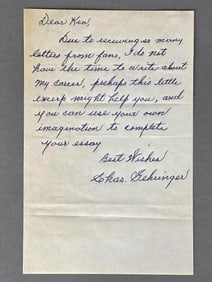 Dear Ken;
Due to receiving so many
letters from fans, I do not
have the time to write about
my career, prehaps this little
excerp might help you, and
you can use your own
imagination to complete
your essay
Best Wishes
Chas. Gehringer